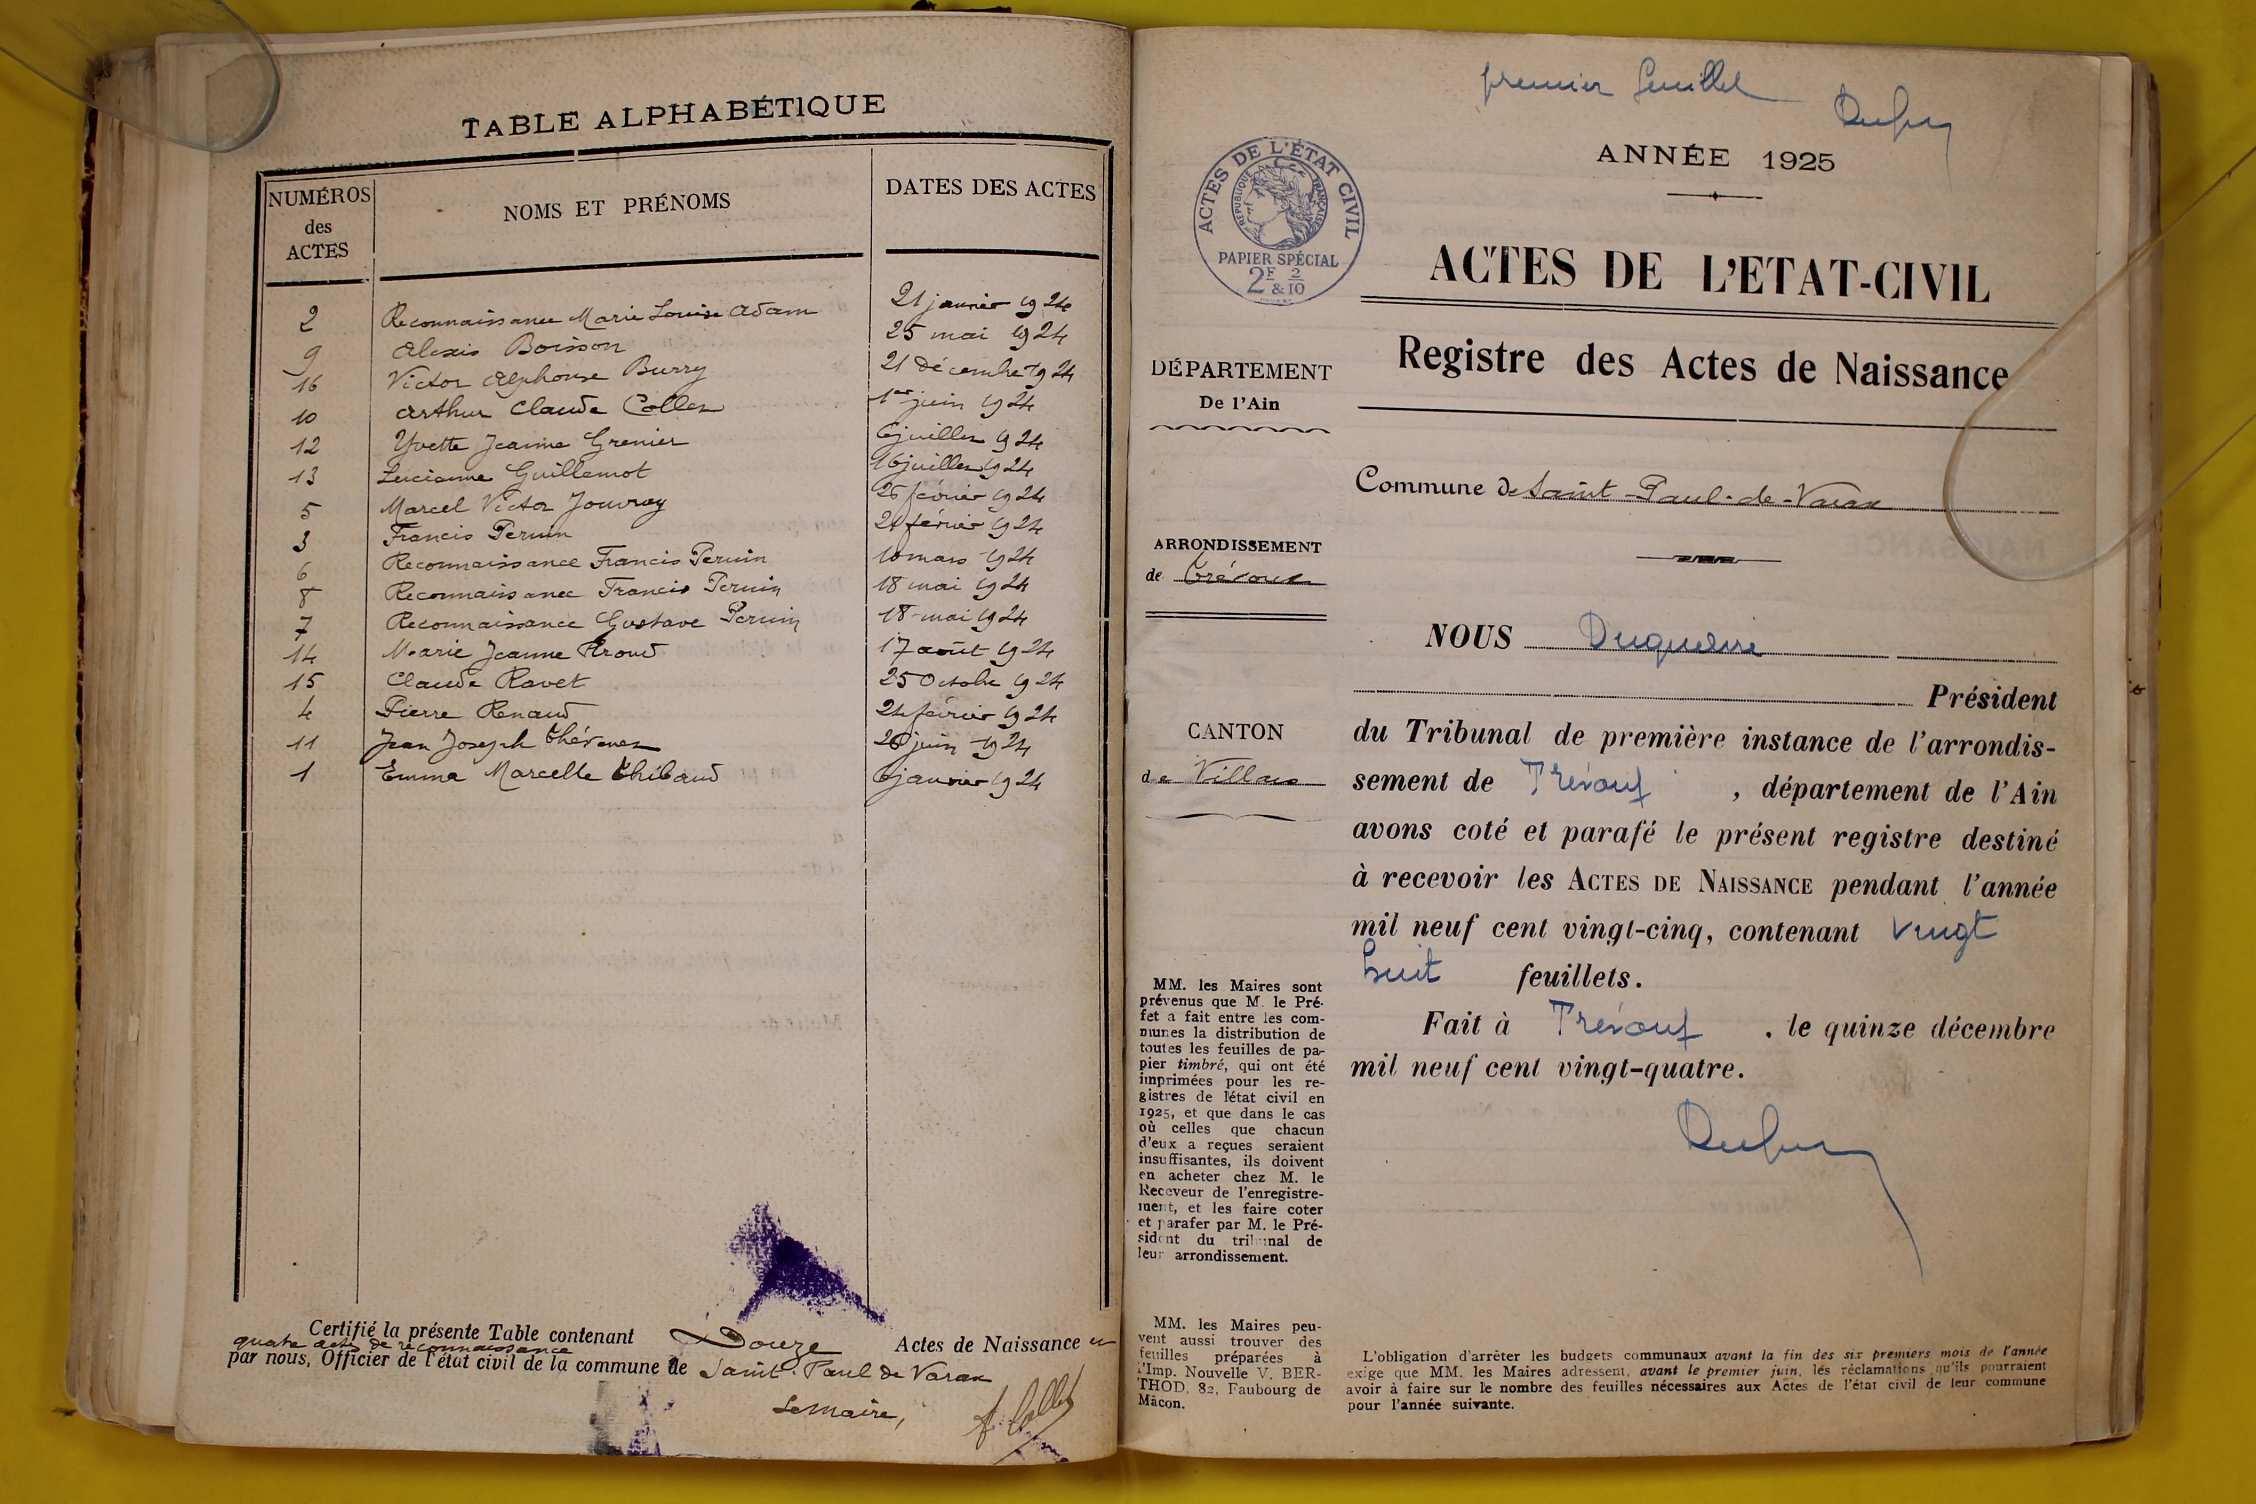 TABLE ALPHABÉTIQUE
NUMÉROS des ACTES NOMS ET PRÉNOMS DATES DES ACTES
2 Reconnaissance Marie Louise Adam 21 janvier 1924
9 Alexis Boisson 25 mai 1924
16 Victor Alphonse Burry 21 décembre 1924
10 Arthur Claude Collet 1er juin 1924
12 Yvette Jeanne Grenier 6 juillet 1924
13 Lucienne Guillemot 16 juillet 1924
5 Marcel Victor Jouvray 26 février 1924
3 Francis Perruin février 1924
6 Reconnaissance Francis Perruin 10 mars 1924
8 Reconnaissance Francis Perruin 18 mai 1924
7 Reconnaissance Gustave Perruin 18 mai 1924
14 Marie Jeanne Proud 17 août 1924
15 Claude Ravet 25 Octobre 1924
4 Pierre Renaud 24 février 1924
11 Jean Joseph Thévenet juin 1924
1 Emma Marcelle Thibaud 6 janvier 1924
Certifié la présente Table contenant Douze Actes de Naissance et
quatre actes de reconnaissance
par nous, Officier de l'état civil de la commune de Saint-Paul de Varax
Le Maire,
A. Collet
premier feuillet
ANNÉE 1925
ACTES DE L'ÉTAT CIVIL
RÉPUBLIQUE FRANÇAISE
PAPIER SPÉCIAL
2F & 2/10
ACTES DE L'ETAT-CIVIL
Registre des Actes de Naissance
DÉPARTEMENT
De l'Ain
Commune de Saint-Paul-de-Varax
ARRONDISSEMENT
de Trévoux
CANTON
de Villars
NOUS
Président
du Tribunal de première instance de l'arrondis-
sement de Trévoux, département de l'Ain
avons coté et parafé le présent registre destiné
à recevoir les ACTES DE NAISSANCE pendant l'année
mil neuf cent vingt-cinq, contenant vingt
huit feuillets.
Fait à Trévoux, le quinze décembre
mil neuf cent vingt-quatre.
MM. les Maires sont
prévenus que M. le Pré-
fet a fait entre les com-
munes la distribution de
toutes les feuilles de pa-
pier timbré, qui ont été
imprimées pour les re-
gistres de l'état civil en
1925, et que dans le cas
où celles que chacun
d'eux a reçues seraient
insuffisantes, ils doivent
en acheter chez M. le
Receveur de l'enregistre-
ment, et les faire coter
et parafer par M. le Pré-
sident du tribunal de
leur arrondissement.
MM. les Maires peu-
vent aussi trouver des
feuilles préparées à
l'Imp. Nouvelle V. BER-
THOD, 82, Faubourg de
Mâcon.
L'obligation d'arrêter les budgets communaux avant la fin des six premiers mois de l'année
exige que MM. les Maires adressent, avant le premier juin, les réclamations qu'ils pourraient
avoir à faire sur le nombre des feuilles nécessaires aux Actes de l'état civil de leur commune
pour l'année suivante.